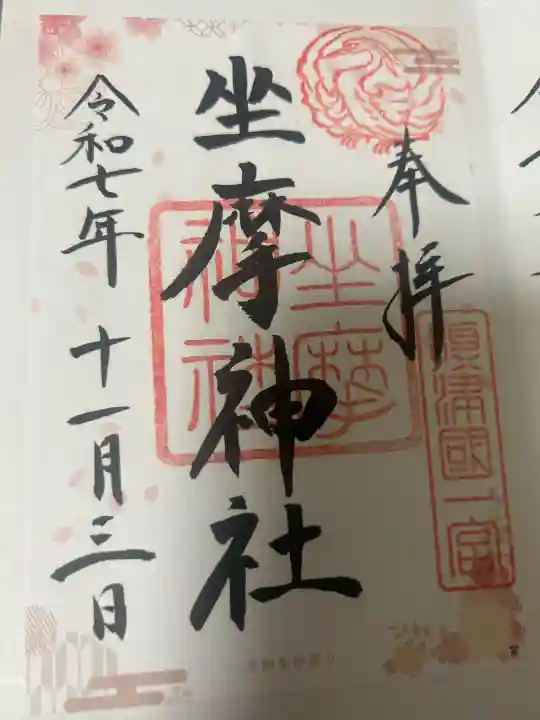 奉拝
攝津國一宮
坐摩神社
坐摩
神社
令和七年 十一月三日